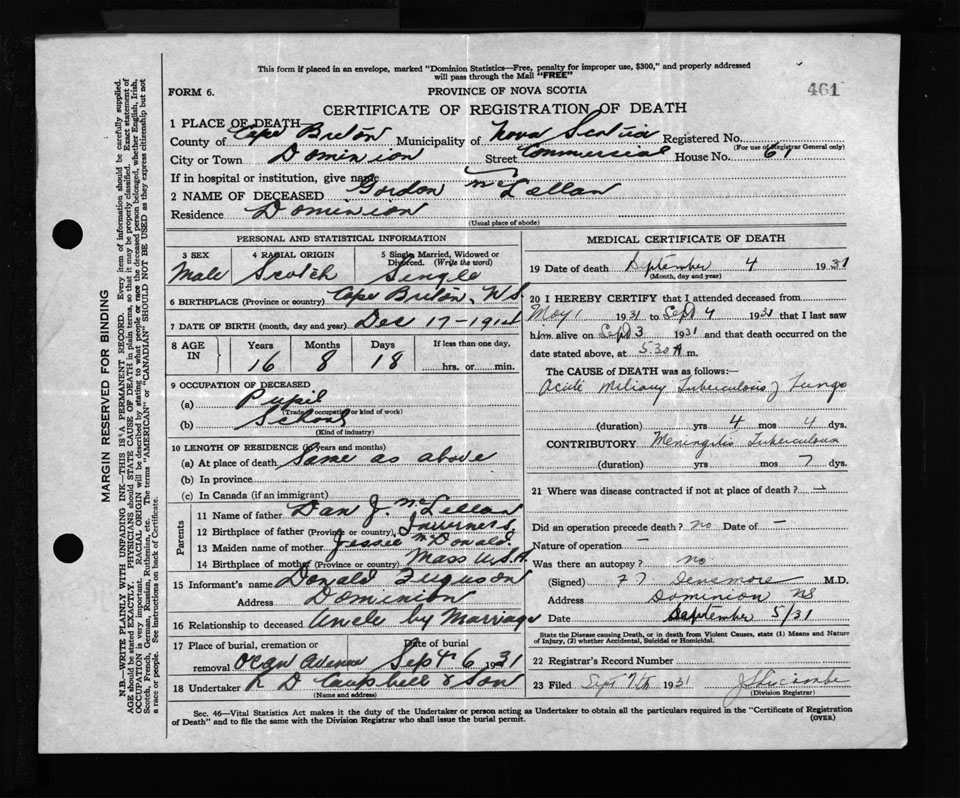 This form if placed in an envelope, marked "Dominion Statistics—Free, penalty for improper use, $300," and properly addressed
will pass through the Mail "FREE"
461
FORM 6.
PROVINCE OF NOVA SCOTIA
CERTIFICATE OF REGISTRATION OF DEATH
1 PLACE OF DEATH—
County of Cape Breton Municipality of Nova Scotia Registered No.
(For use of Registrar General only)
City or Town Dominion Street Commercial House No. 61
If in hospital or institution, give name
2 NAME OF DECEASED Gordon McLellan
Residence Dominion
(Usual place of abode)
PERSONAL AND STATISTICAL INFORMATION
3 SEX 4 RACIAL ORIGIN 5 Single, Married, Widowed or Divorced. (Write the word)
Male Scotch Single
6 BIRTHPLACE (Province or country) Cape Breton, N.S.
7 DATE OF BIRTH (month, day and year) Dec 17-1914
8 AGE IN Years Months Days If less than one day,
16 8 18 hrs. or min.
9 OCCUPATION OF DECEASED
(a) Pupil
(Trade, occupation or kind of work)
(b) School
(Kind of industry)
10 LENGTH OF RESIDENCE (in years and months)
(a) At place of death Same as above
(b) In province
(c) In Canada (if an immigrant)
Parents
11 Name of father Dan J. McLellan
12 Birthplace of father (Province or country) Inverness
13 Maiden name of mother Jessie McDonald.
14 Birthplace of mother (Province or country) Mass U.S.A
15 Informant's name Donald Ferguson
Address Dominion
16 Relationship to deceased Uncle by Marriage
17 Place of burial, cremation or removal Date of burial
Sept 6 1931
18 Undertaker R D Campbell & Son
(Name and address)
MEDICAL CERTIFICATE OF DEATH
19 Date of death September 4 1931
(Month, day and year)
20 I HEREBY CERTIFY that I attended deceased from
May 1 1931 to Sept 4 1931 that I last saw
him alive on Sept 3 1931 and that death occurred on
date stated above, at 5.30 A m.
The CAUSE of DEATH was as follows:
Acute Miliary Tuberculosis of Lungs
(duration) yrs 4 mos 4 dys.
CONTRIBUTORY Meningitis Tuberculous
(duration) yrs mos 7 dys.
21 Where was disease contracted if not at place of death? —
Did an operation precede death? no Date of —
Nature of operation —
Was there an autopsy? no
(Signed) Densmore M.D.
Address Dominion NS
Date September 5/31
State the Disease causing Death, or in death from Violent Causes, state (1) Means and Nature
of Injury, (2) whether Accidental, Suicidal or Homicidal.
22 Registrar's Record Number
23 Filed Sept 7th 1931
(Division Registrar)
Sec. 46—Vital Statistics Act makes it the duty of the Undertaker or person acting as Undertaker to obtain all the particulars required in the "Certificate of Registration
of Death" and to file the same with the Division Registrar who shall issue the burial permit.
(OVER)
MARGIN RESERVED FOR BINDING
N.B.—WRITE PLAINLY WITH UNFADING INK—THIS IS A PERMANENT RECORD. Every item of information should be carefully supplied.
AGE should be stated EXACTLY. PHYSICIANS should STATE CAUSE OF DEATH in plain terms, so that it may be properly classified. Exact statement of
OCCUPATION is very important. RACIAL ORIGIN will be described by stating to what people or race the deceased person belonged, whether English, Irish,
Scotch, French, German, Russian, Ruthenian, etc. The terms "AMERICAN" or "CANADIAN" SHOULD NOT BE USED as they express citizenship but not
a race or people. See instructions on back of Certificate.